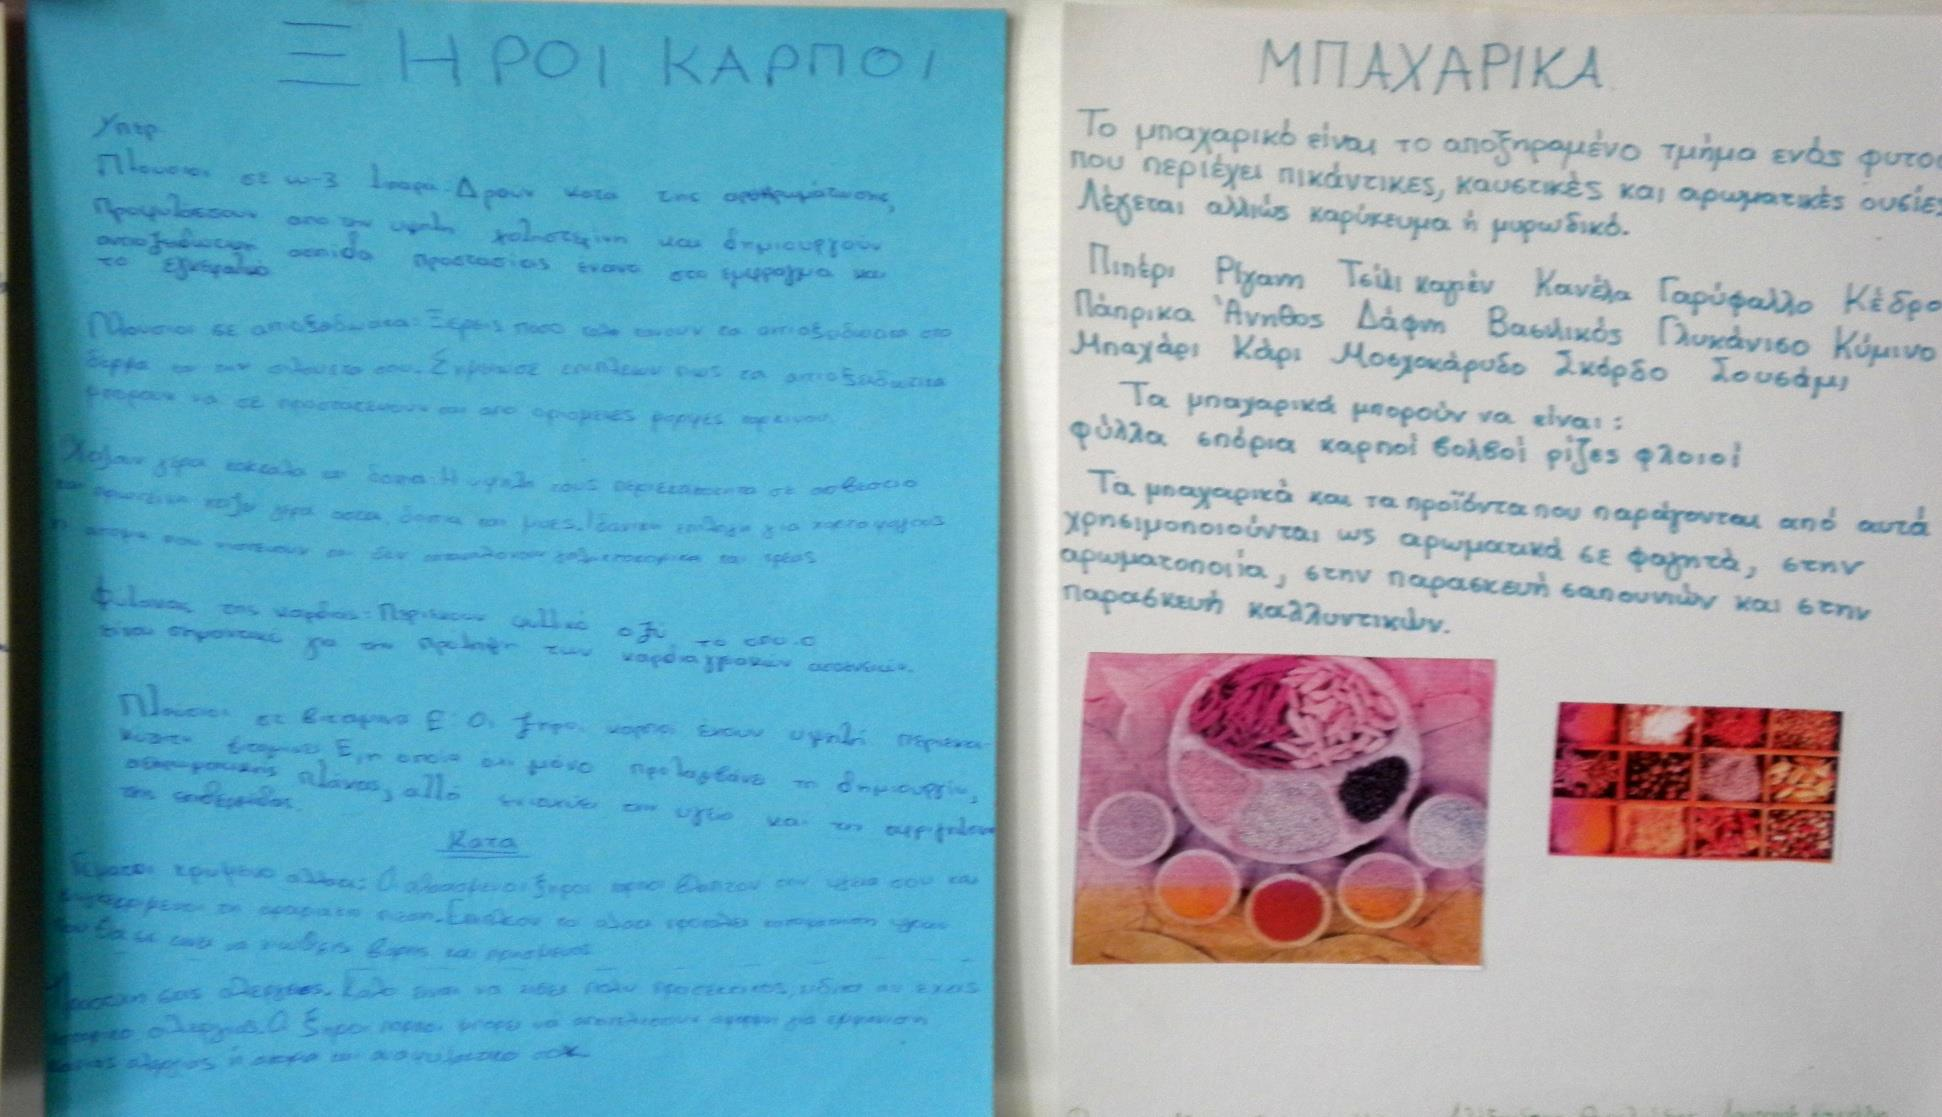 ΞΗΡΟΙ ΚΑΡΠΟΙ
Υπερ
Πλουσιοι σε ω-3 λιπαρα: Δρουν κατα της
Προφυλάσσουν απο την υψηλη χοληστερίνη και δημιουργούν
ασπίδα προστασίας έναντι στο έμφραγμα και
το εγκεφαλικό
Πλουσιοι σε αντιοξειδωτικα: Ξέρεις ποσο καλο κανουν τα αντιοξειδωτικα στο
δερμα και την σιλουετα σου. Σημείωσε επιπλεων πως τα αντιοξειδωτικα
μπορουν να σε προστατευσουν και απο ορισμενες μορφες καρκινου.
Χαριζουν γερα κοκκαλα και δοντια: Η υψηλη τους περιεκτικοτητα σε ασβεστιο
και πρωτεινη χαριζει γερα οστα, δοντια και μυες. Ιδανικη επιλογη για χορτοφαγους
η ατομα που δεν καταναλωνουν γαλακτοκομικα και κρεας
Φυλακας της καρδιας: Περιεχουν φυλλικό οξύ, το οποιο
είναι σημαντικό για την προληψη των καρδιαγγειακών ασθενειών.
Πλουσιοι σε βιταμινη Ε: Οι ξηροι καρποι έχουν υψηλή περιεκτι-
κοτητα βιταμινης Ε, η οποία όχι μόνο προλαμβάνει τη δημιουργία,
αθηρωματικής πλάκας, αλλά ενισχύει την υγεία και τη
της επιδερμίδας.
Κατα
Γεματοι κρυμμενο αλατι: Οι αλατισμενοι ξηροι καρποι βλαπτουν την υγεια σου και
συγκεκριμενα τη πιεση. Επιπλεον το αλατι προκαλει κατακρατηση υγρων
που θα σε κανει να νιωθεις βαρυς και πρησμενος
Προσοχη στις αλεργιες. Καλο ειναι να εισαι πολυ προσεκτικος, ειδικα αν εχεις
ιστορικο αλεργιας. Οι ξηροι καρποι μπορει να αποτελεσουν αφορμη για εμφανιση
καποιας αλεργιας
ΜΠΑΧΑΡΙΚΑ
Το μπαχαρικό είναι το αποξηραμένο τμήμα ενός φυτού
που περιέχει πικάντικες, καυστικές και αρωματικές ουσίες
Λέγεται αλλιώς καρύκευμα ή μυρωδικό.
Πιπέρι Ρίγανη Τσίλι καγέν Κανέλα Γαρύφαλλο Κέδρο
Πάπρικα Άνηθος Δάφνη Βασιλικός Γλυκάνισο Κύμινο
Μπαχάρι Κάρι Μοσχοκάρυδο Σκόρδο Σουσάμι
Τα μπαχαρικά μπορούν να είναι:
φύλλα σπόρια καρποί βολβοί ρίζες φλοιοί
Τα μπαχαρικά και τα προϊόντα που παράγονται από αυτά
χρησιμοποιούνται ως αρωματικά σε φαγητά, στην
αρωματοποιία, στην παρασκευή σαπουνιών και στην
παρασκευή καλλυντικών.